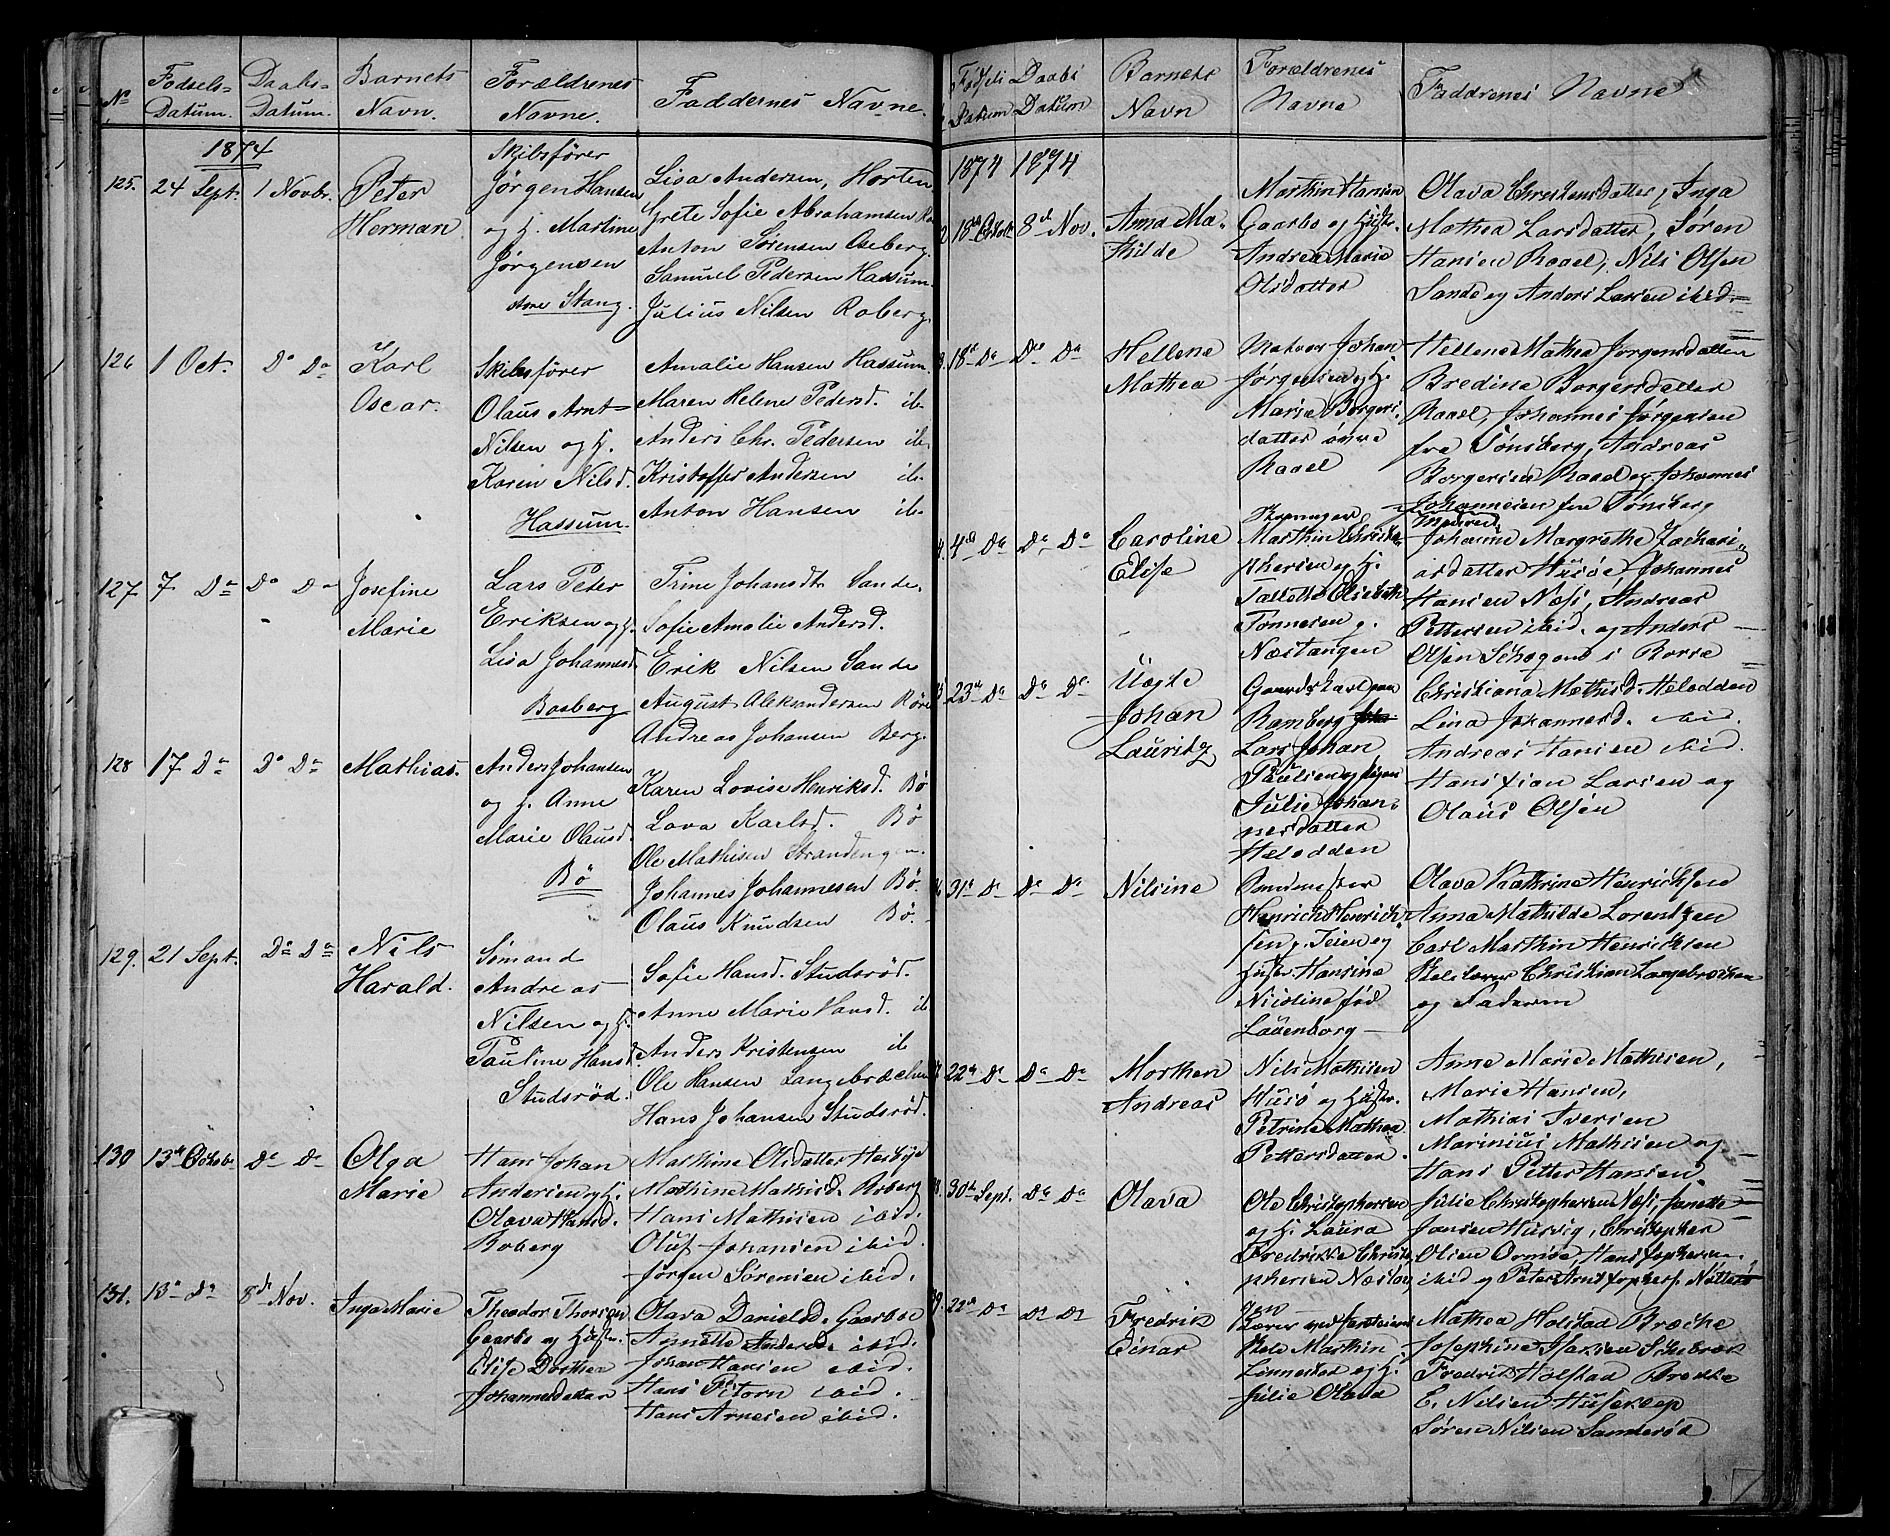 No
Fødsels-
Datum.
Daabs-
Datum.
Barnets
Navn.
Forældrenes
Navne.
Faddernes Navne.
1874
125.
24 Sept.
1 Novbr.
Peter
Herman
Skibsfører
Jørgen Hansen
og h. Martine
Jørgensen
store Stang.
Lisa Andersen, Horten
Grete Sofie Abrahamsen
Anton Sørensen Oseberg.
Samuel Pedersen Hassum.
Julius Nilsen Roberg.
126
1 Oct.
Do Da
Karl
Oscar.
Skibsfører
Olaus Arnt
Nilsen og h.
Karin Nilsd.
Hassum.
Amalie Hansen Hassum.
Maren Helene Pedersd. ib.
Anders Chr. Pedersen ib.
Kristoffer Andersen ib.
Anton Hansen ib.
127
7 Da
Do Da
Josefine
Marie
Lars Peter
Eriksen og h.
Lisa Johannesd.
Basberg
Trine Johansdt. Sande.
Sofie Amalie Andersd.
Erik Nilsen Sande
August Aleksandersen Røre
Andreas Johansen Berg.
128
17 Da
Do Da
Mathias.
Anders Johansen
og h. Anne
Marie Olausd.
Bø
Karen Lovise Henriksd. Bø
Lava Karlsd. Bø
Ole Mathisen Strandengen.
Johannes Johannesen Bø.
Olaus Knudsen Bø.
129.
21 Sept.
Do Da
Nils
Harald.
Sømand
Andreas
Nilsen og h.
Pauline Hansd.
Studsrød.
Sofie Hansd. Studsrød.
Anne Marie Hansd. ib
Anders Kristensen ib
Ole Hansen Langebrækken
Hans Johansen Studsrød.
130
13de Octob.
Da Da
Olga
Marie
Hans Johan
Andersen og h.
Olava Hansd.
Roberg
Mathine Olsdatter Hesbye
Mathine Mathisd. Roberg
Hans Mathisen ibid.
Oluf Johansen ibid.
Jørgen Sørensen ibid.
131.
13de Da
8de Nov.
Inga Marie
Theodor Thorsen
Gaarbo og Hustr.
Elise Dorthea
Johannesdatter
Olava Danielsd. Gaarboe
Annette Andersd. ibid.
Johan Hansen ibid.
Hans Pettern ibid.
Hans Arnesen ibid.
Fødsels
Datum
Daabs
Datum
Barnets
Navn
Forældrenes
Navne
Faddrenes Navne
1874
1874
18de Octob.
8de Nov.
Anna Ma-
thilde
Marthin Hansen
Gaarbo og Hustr.
Andrea Marie
Olsdatter
Olava Christensdatter, Inga
Mathea Larsdatter, Søren
Hansen Raael, Nils Olsen
Sande og Anders Larsen ibid.
18de Da
Do Da
Hellena
Mathea
Matros Johan
Jørgensen og h.
Marie Borgers-
datter øvre
Raael
Hellene Mathea Jørgensdatter
Bredine Borgersdatter
Raael, Johannes Jørgensen
fra Tønsberg, Andreas
Borgersen Raael og Johannes
Johannesen fra Tønsberg
4de Da
Da Da
Caroline
Elise
Marthin Christo-
phersen og h.
Tallette Elisebeth
Tønnesen p.
Næstangen
Johanne Margrethe Zachari-
asdatter Husøe, Johannes
Hansen Næs, Andreas
Pettersen ibid. og Anders
Olsen Skogene i Borre
23de Da
Da Da
Uægte
Johan
Lauritz
Gaardskarl paa
Ramberg
Lars Johan
Paulsen og pigen
Julie Johan-
nesdatter
Helodden
Christiana Mathisd. Helodden
Lina Johannesd. ibid.
Andreas Hansen ibid.
Hans Xian Larsen og
Olaus Olsen
31te Da
Da Da
Nilsine
Henrich Henrich-
sen p. Teien og
Hustr. Hansine
Nicoline fød
Lauenborg
Olava Kathrine Henrichsen
Anna Mathilde Lorentzen
Carl Marthin Henrichsen
Christian Langebrækken
og Faderen
22de Da
Da Da
Morthen
Andreas
Nils Mathisen
Husø og Hustr.
Petrine Mathea
Pettersdatter.
Anne Marie Mathisen,
Marie Hansen,
Mathias Iversen
Marinius Mathisen og
Hans Petter Hansen
30te Sept.
Da Da
Olava
Ole Christophersen
og h. Laura
Fredrikke Christo-
phersen Næstan-
gen
Julie Christophersen Næs, Janette
Jansen Husvig, Christopher
Olsen Ormøe, Hans Xophersen
ibid og Peter Arnt Xophers. Nøtterø
22de Da
Da Da
Fredrik
Einar
Marthin
Linnestad og h.
Julie Olava
Mathea Holstad Brække
Josephine
Fredrik Holstad Brække
C. Nilsen Huseklep
Søren Nilsen Sanderød